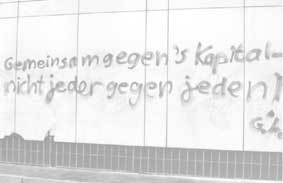 Gemeinsam gegen's Kapital-
nicht jeder gegen jeden!